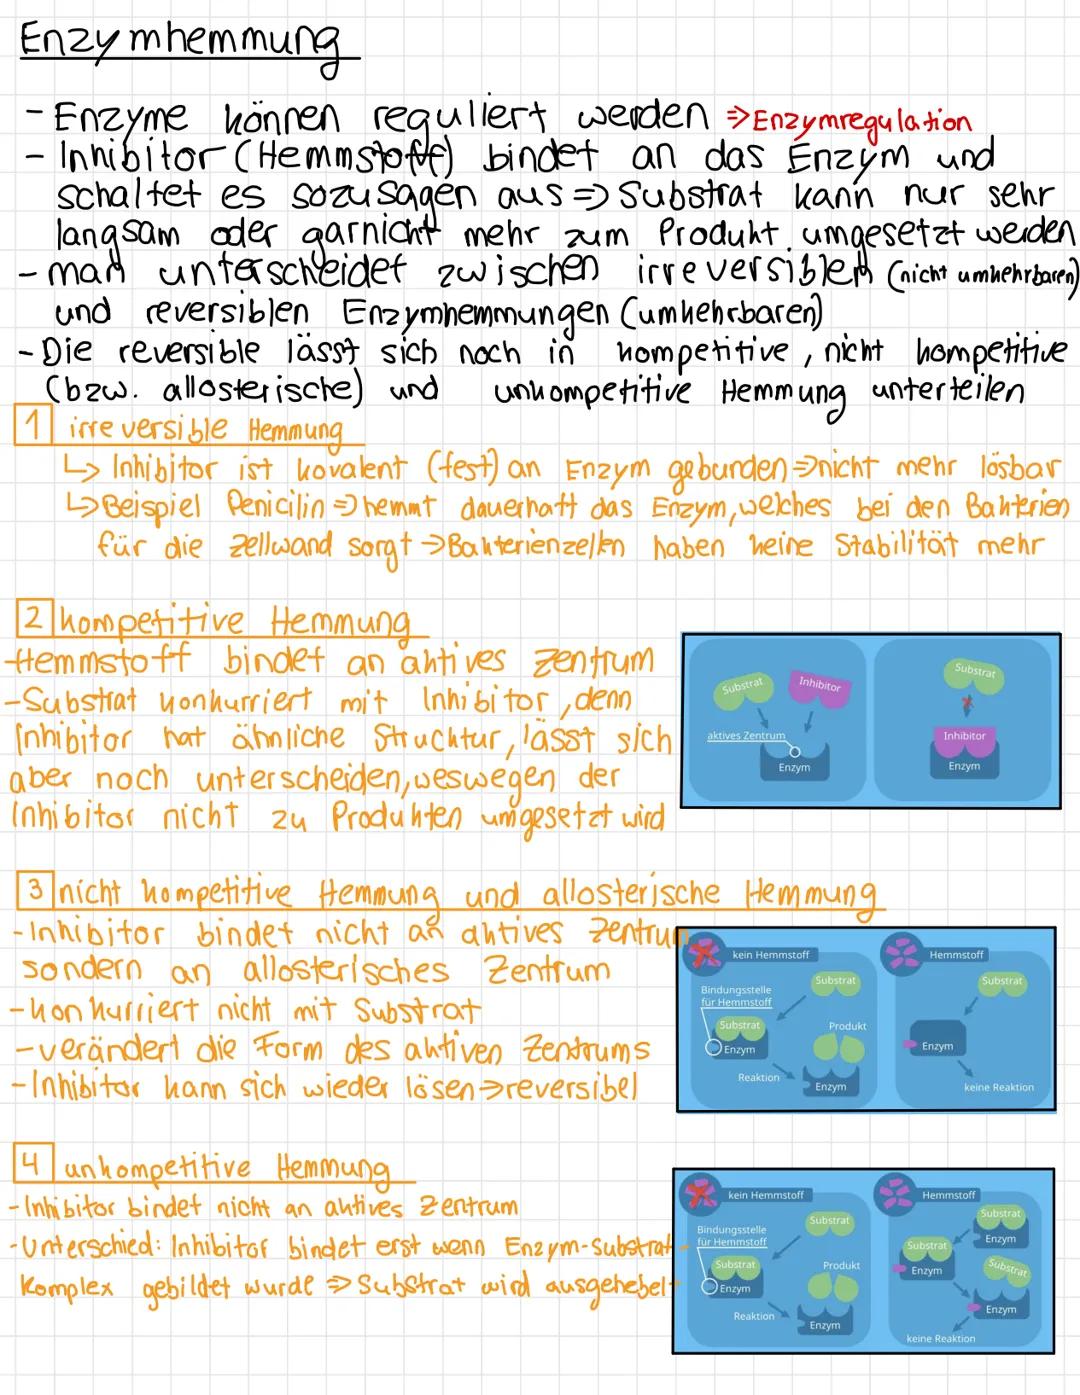 Enzymhemmung
- Enzyme können reguliert werden ⇒ Enzymregulation
- Inhibitor (Hemmstoff) bindet an das Enzym und
schaltet es sozusagen aus ⇒ Substrat kann nur sehr
langsam oder garnicht mehr zum Produkt umgesetzt werden
- man unterscheidet zwischen irreversiblen (nicht umkehrbaren)
und reversiblen Enzymhemmungen (umkehrbaren)
- Die reversible lässt sich noch in kompetitive, nicht kompetitive
(bzw. allosterische) und unkompetitive Hemmung unterteilen
1 irreversible Hemmung
↳ Inhibitor ist kovalent (fest) an Enzym gebunden ⇒ nicht mehr lösbar
↳ Beispiel Penicilin ⇒ hemmt dauerhaft das Enzym, welches bei den Bakterien
für die Zellwand sorgt → Bakterienzellen haben keine Stabilität mehr
2 kompetitive Hemmung
-Hemmstoff bindet an aktives Zentrum
-Substrat konkurriert mit Inhibitor, denn
Inhibitor hat ähnliche Strucktur, lässt sich
aber noch unterscheiden, weswegen der
Inhibitor nicht zu Produkten umgesetzt wird
Substrat
Inhibitor
aktives Zentrum
Enzym
Substrat
Inhibitor
Enzym
3 nicht kompetitive Hemmung und allosterische Hemmung
- Inhibitor bindet nicht an aktives Zentrum
sondern an allosterisches Zentrum
- konkurriert nicht mit Substrat
- verändert die Form des aktiven Zentrums
- Inhibitor kann sich wieder lösen → reversibel
kein Hemmstoff
Substrat
Bindungsstelle
für Hemmstoff
Substrat
Enzym
Produkt
Reaktion
Enzym
Hemmstoff
Substrat
Enzym
keine Reaktion
4 unkompetitive Hemmung
- Inhibitor bindet nicht an aktives Zentrum
- Unterschied: Inhibitor bindet erst wenn Enzym-Substrat-
Komplex gebildet wurde ⇒ Substrat wird ausgehebelt
kein Hemmstoff
Substrat
Bindungsstelle
für Hemmstoff
Substrat
Enzym
Produkt
Reaktion
Enzym
Hemmstoff
Substrat
Enzym
Substrat
Enzym
Substrat
Enzym
keine Reaktion